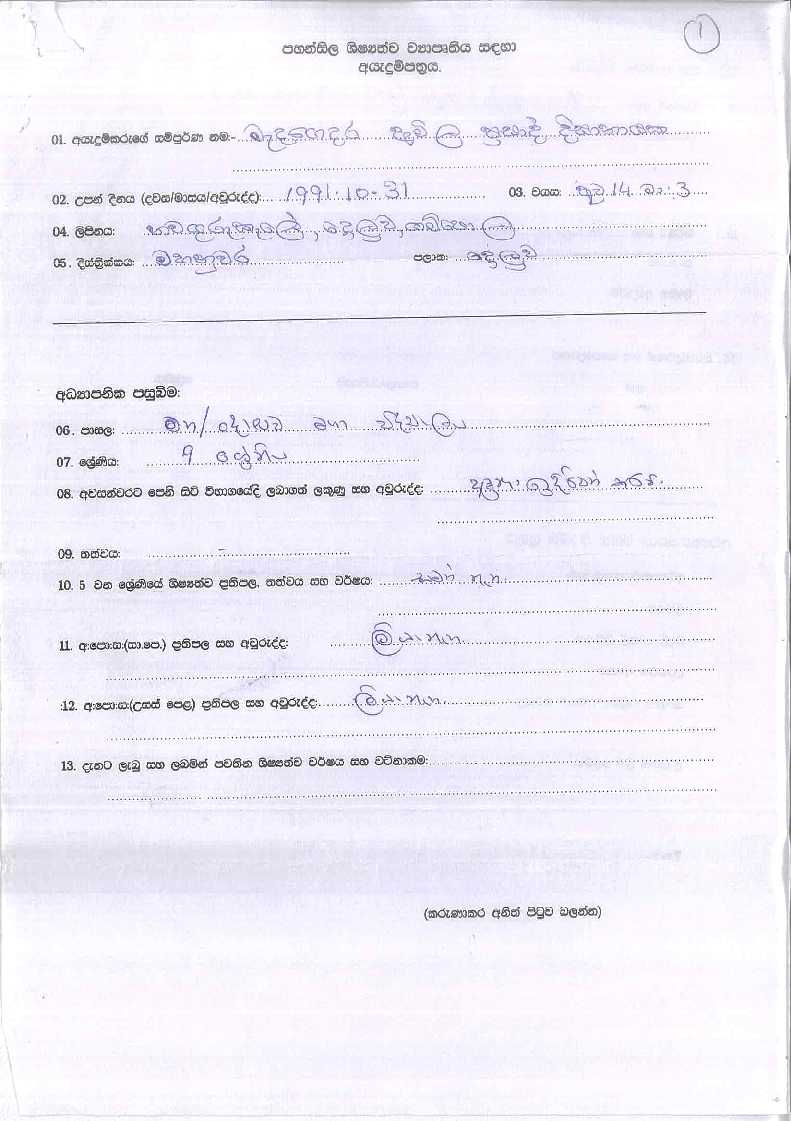 1
පහන්සිල ශිෂ්‍යත්ව ව්‍යාපෘතිය සඳහා
අයැදුම්පත්‍රය.
01. අයැදුම්කරුගේ සම්පූර්ණ නම:- මැදගෙදර ප්‍රසාද් දිසානායක
02. උපන් දිනය (දවස/මාසය/අවුරුද්ද): 1991.10-31 03. වයස: අවු 14 මා: 3
04. ලිපිනය:
05. දිස්ත්‍රික්කය: මහනුවර පලාත:
අධ්‍යාපනික පසුබිම:
06. පාසල: මහ/ මහා විද්‍යාලය
07. ශ්‍රේණිය: 9 ශ්‍රේණිය
08. අවසන්වරට පෙනී සිටි විභාගයේදී ලබාගත් ලකුණු සහ අවුරුද්ද: ඉදිරිපත් කරමි.
09. තත්වය: -
10. 5 වන ශ්‍රේණියේ ශිෂ්‍යත්ව ප්‍රතිඵල, තත්වය සහ වර්ෂය: සමත් නැත
11. අ:පො:ස:(සා.පෙ.) ප්‍රතිඵල සහ අවුරුද්ද: ලියා නැත
12. අ:පො:ස:(උසස් පෙළ) ප්‍රතිඵල සහ අවුරුද්ද: ලියා නැත
13. දැනට ලැබූ සහ ලබමින් පවතින ශිෂ්‍යත්ව වර්ෂය සහ වටිනාකම:
(කරුණාකර අනිත් පිටුව බලන්න)